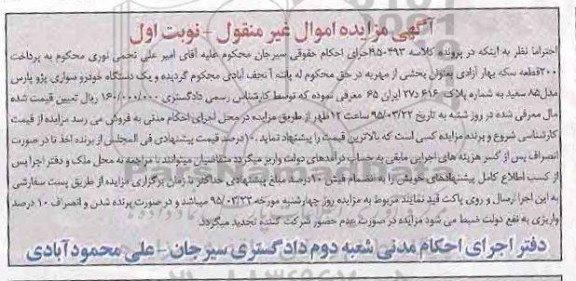 آگهی مزایده اموال غیر منقول - نوبت اول
احتراما نظر به اینکه در پرونده کلاسه 950493اجرای احکام حقوقی سیرجان محکوم علیه آقای امیر علی نجمی نوری محکوم به پرداخت
200قطعه سکه بهار آزادی بعنوان بخشی از مهریه در حق محکوم له یانته آنجف آبادی محکوم گردیده و یک دستگاه خودرو سواری پژو پارس
مدل85 سفید به شماره پلاک 616 ی27 ایران 65 معرفی نموده که توسط کارشناس رسمی دادگستری 160/000/000 ریال تعیین قیمت شده
مال معرفی شده در روز شنبه به تاریخ 95/03/22 ساعت 12 ظهر از طریق مزایده در محل اجرای احکام مدنی به فروش می رسد مزایده از قیمت
کارشناسی شروع و برنده مزایده کسی است که بالاترین قیمت را پیشنهاد نماید .10 درصد قیمت پیشنهادی فی المجلس از برنده اخذ تا در صورت
انصراف پس از کسر هزینه های اجرایی مابقی به حساب درآمدهای دولت واریز میگردد متقاضیان میتوانند با مراجعه به محل ملک و دفتر اجرا پس
از کسب اطلاع کامل پیشنهادهای خویش را به انضمام فیش 10درصد مبلغ پیشنهادی حداکثر تا زمان برگزاری مزایده از طریق پست سفارشی
به این اجرا ارسال و روی پاکت قید نمایند مربوط به مزایده روز چهارشنبه مورخه 95/03/22 میباشد و در صورت برنده شدن و انصراف 10 درصد
واریزی به نفع دولت ضبط می شود مزایده در صورت عدم حضور شرکت کننده تجدید میگردد
دفتر اجرای احکام مدنی شعبه دوم دادگستری سیرجان - علی محمودآبادی